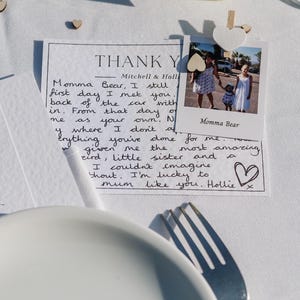 THANK Y
Mitchell & Holl
Momma Bear, I still
first day I met you.
back of the car with
in. From that day o
me as your own. N
y where I don't
erything you've done for me
given me the most amazing
little sister and a
I couldn't imagine
thout. I'm lucky to
mum like you. Hollie
Momma Bear